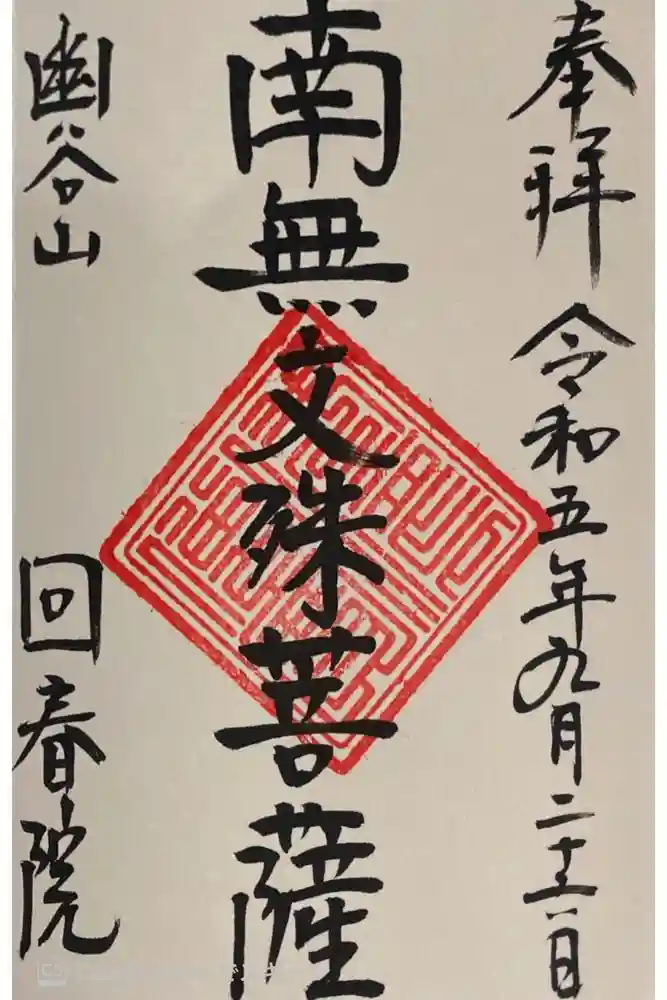 奉拝 令和五年九月二十六日
南無文殊菩薩
幽谷山 回春院